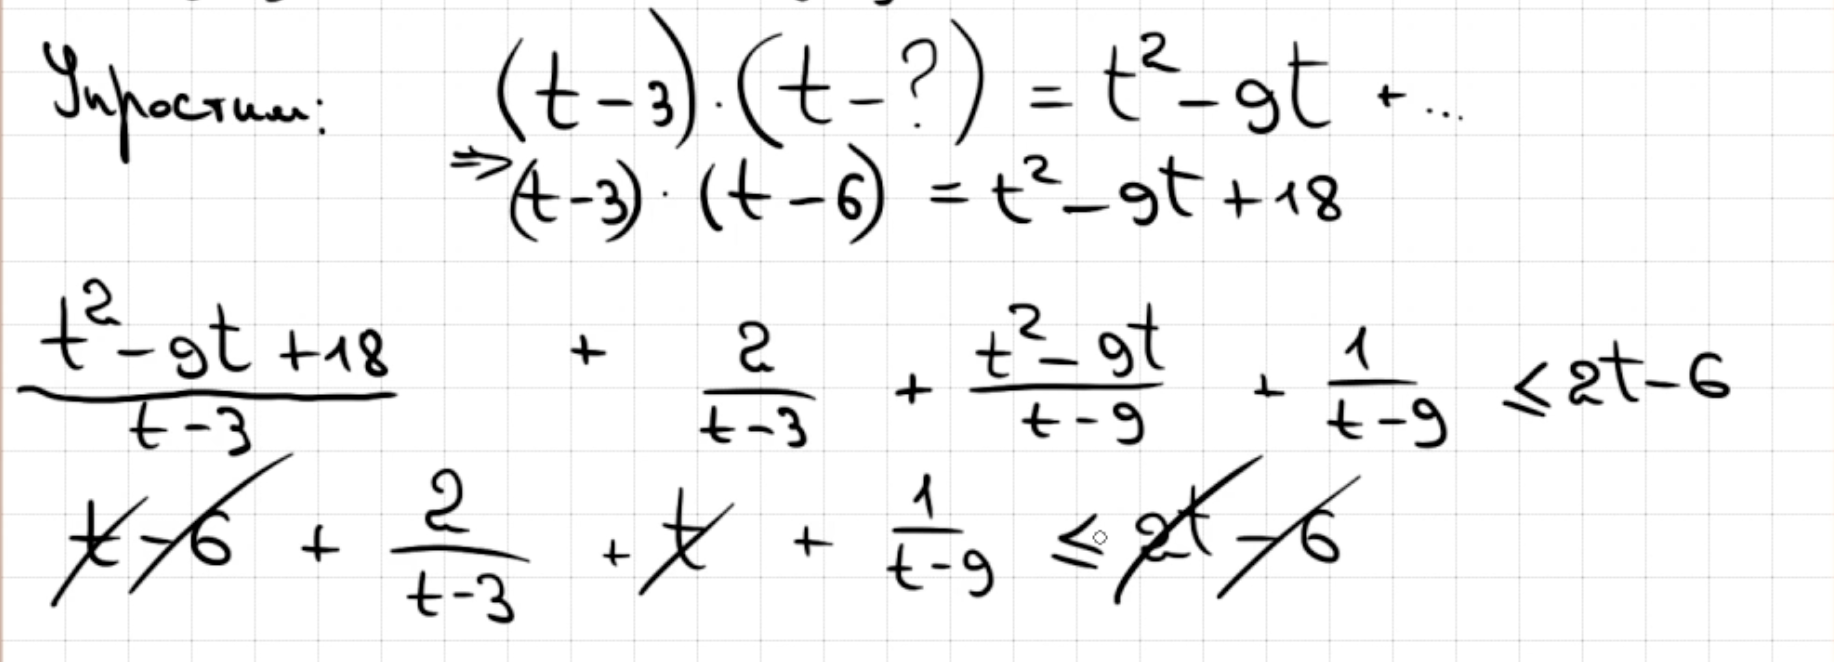 Упростим: (t-3)·(t-?) = t²-9t + ...
⇒(t-3)·(t-6) = t²-9t+18
(t²-9t+18)/(t-3) + 2/(t-3) + (t²-9t)/(t-9) + 1/(t-9) ≤ 2t-6
t-6 + 2/(t-3) + t + 1/(t-9) ≤ 2t-6